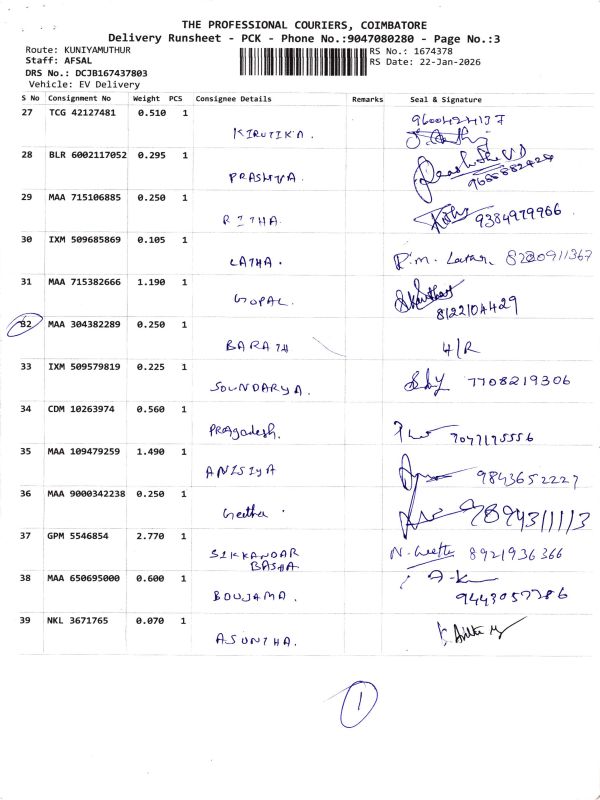 THE PROFESSIONAL COURIERS, COIMBATORE
Delivery Runsheet - PCK - Phone No.:9047080280 - Page No.:3
Route: KUNIYAMUTHUR
RS No.: 1674378
Staff: AFSAL
RS Date: 22-Jan-2026
DRS No.: DCJB167437803
Vehicle: EV Delivery
S No Consignment No Weight PCS Consignee Details Remarks Seal & Signature
27 TCG 42127481 0.510 1
KIRUTIKA.
28 BLR 6002117052 0.295 1
PRASHYA.
29 MAA 715106885 0.250 1
RITHA. 9384979966
30 IXM 509685869 0.105 1
LATHA. 8220911367
31 MAA 715382666 1.190 1
GOPAL. 8122104429
32 MAA 304382289 0.250 1
BARATH 4/R
33 IXM 509579819 0.225 1
SOUNDARYA. 7708219306
34 CDM 10263974 0.560 1
PRAgadesh.
35 MAA 109479259 1.490 1
ANISIYA 9843652227
36 MAA 9000342238 0.250 1
Geetha. 9894311113
37 GPM 5546854 2.770 1
SIKKANDAR 8921936366
BASHA
38 MAA 650695000 0.600 1
BOUJAMA. 9443057786
39 NKL 3671765 0.070 1
ASUNTHA.
1